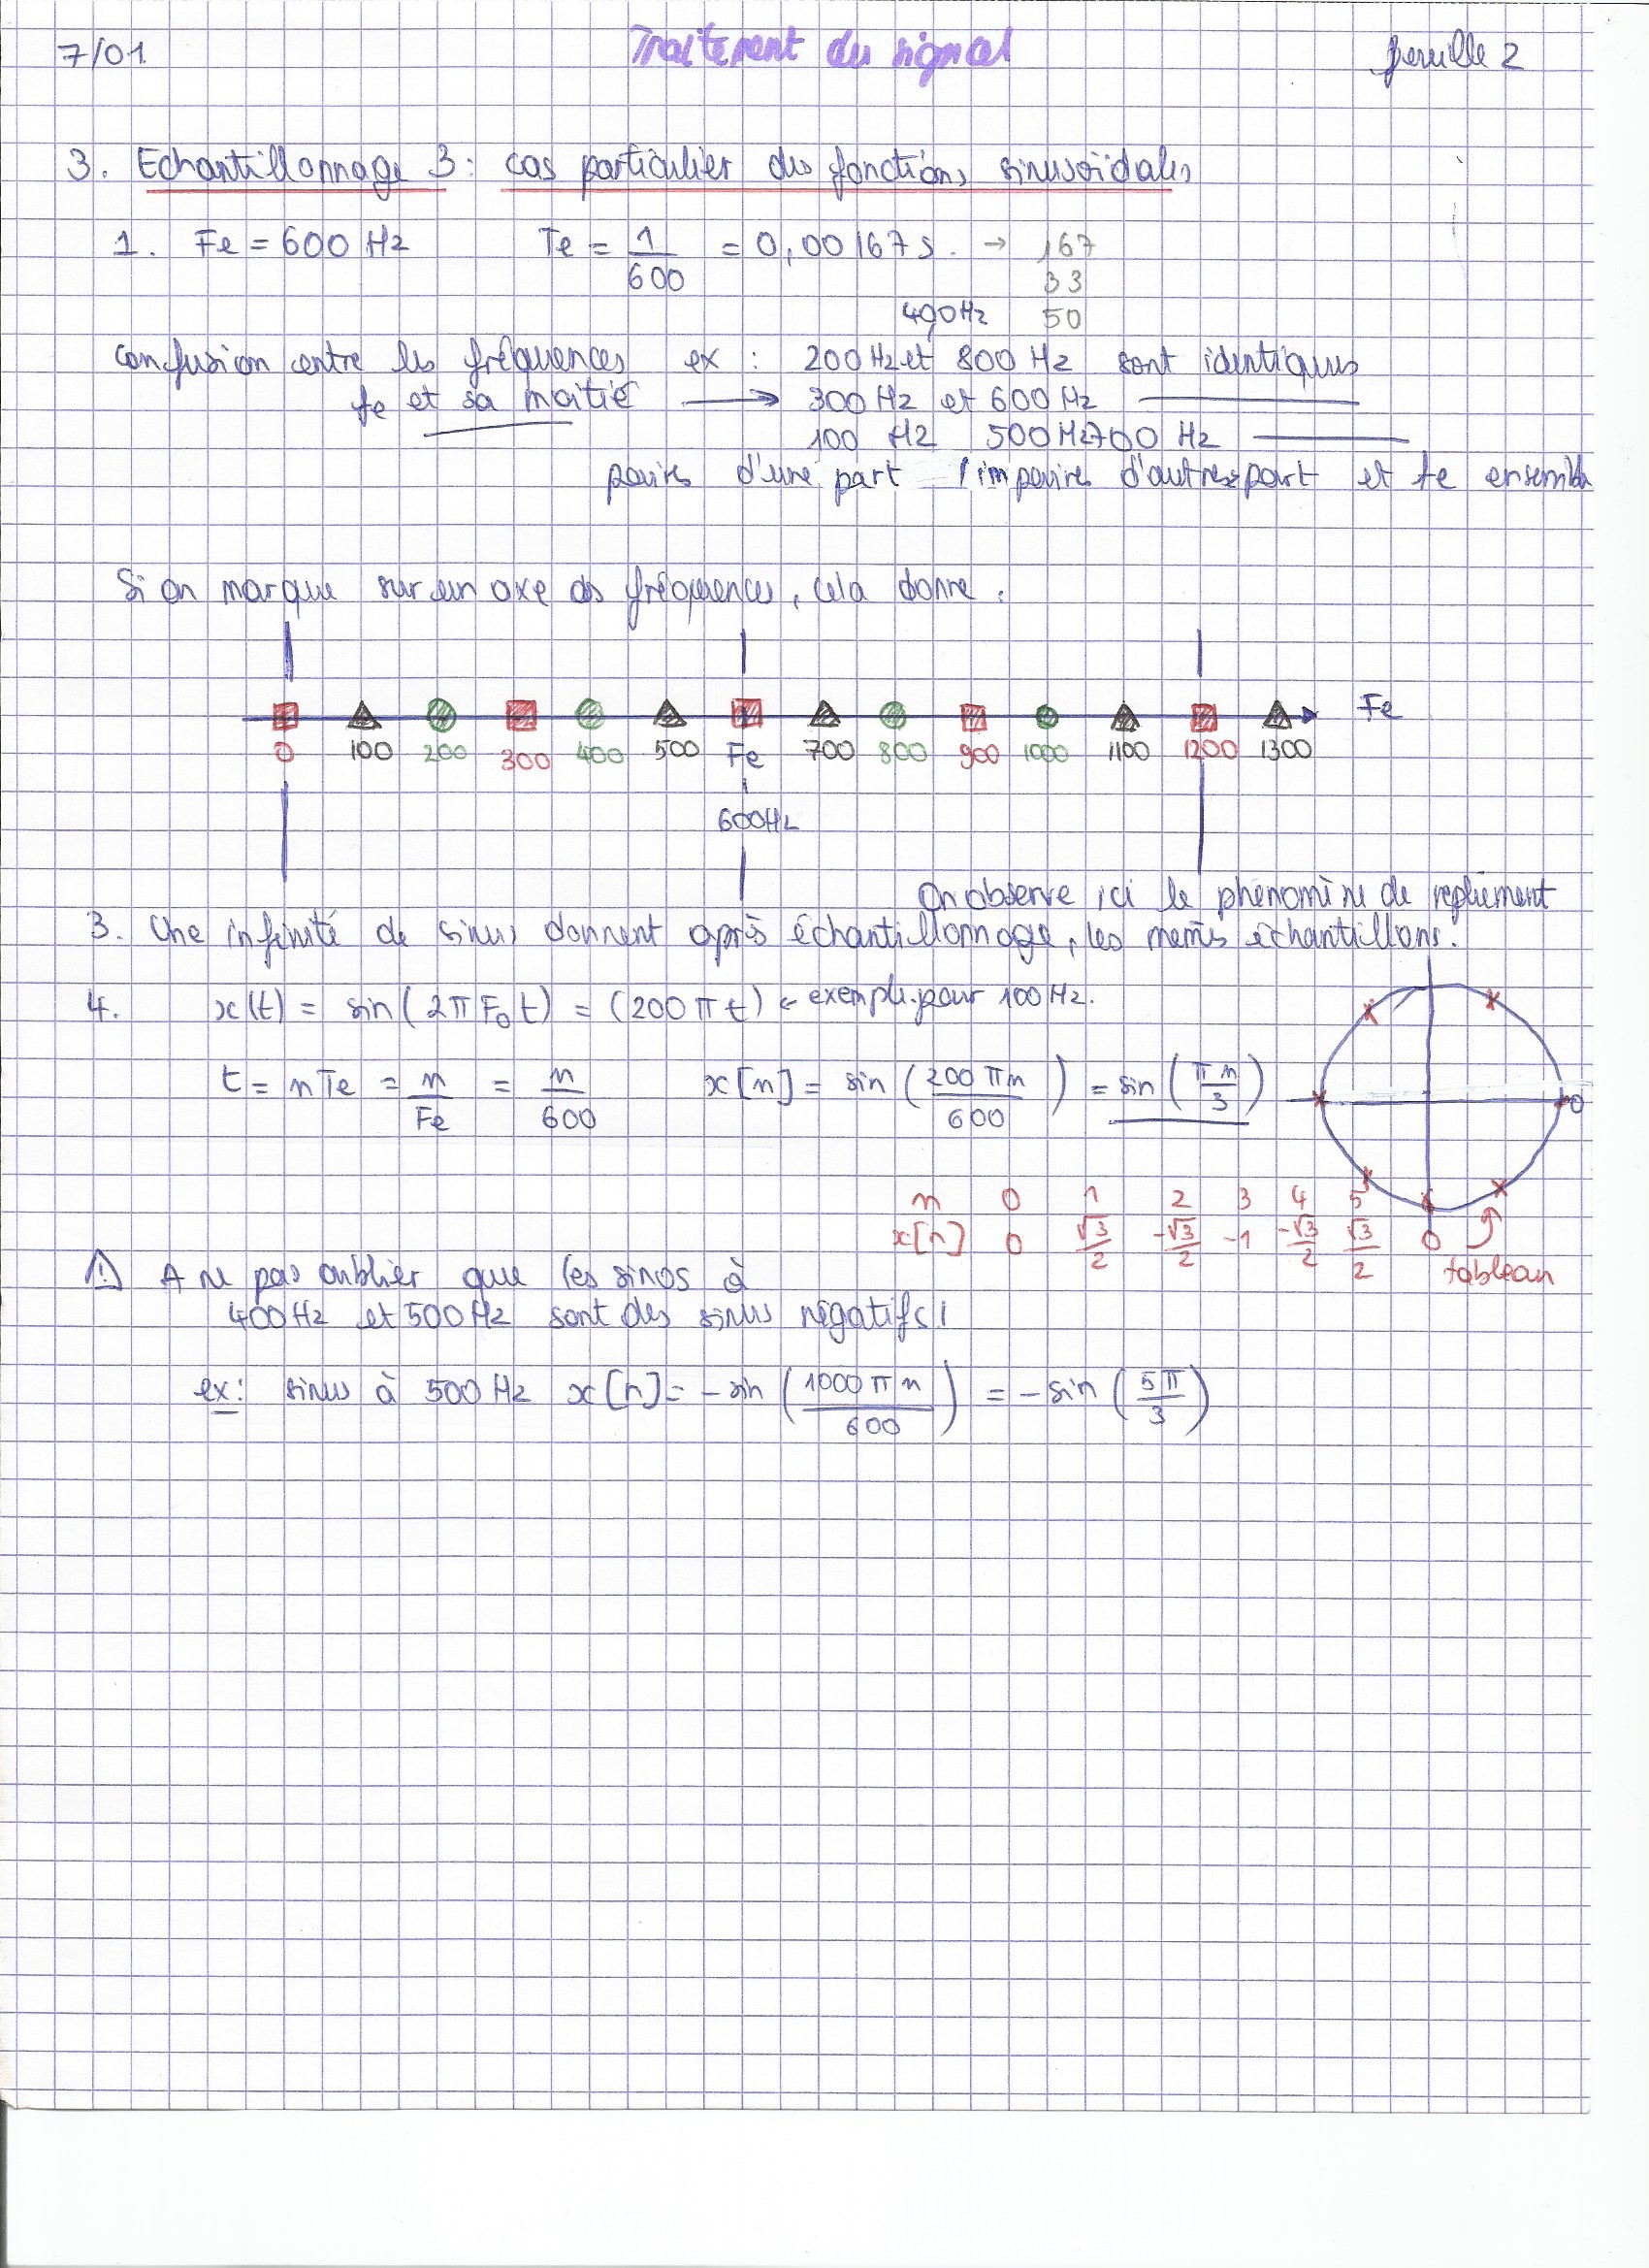 7/01 Traitement du signal feuille 2
3. Echantillonnage 3 : cas particulier des fonctions sinusoïdales
1. Fe = 600 Hz Te = 1/600 = 0,00167 s. → 167
33
400Hz 50
confusion entre les fréquences ex : 200 Hz et 800 Hz sont identiques
fe et sa moitié → 300 Hz et 600 Hz
100 Hz 500Hz 700 Hz
paires d'une part / impaires d'autres part et fe ensemble
Si on marque sur un axe des fréquences, cela donne :
Fe
0 100 200 300 400 500 Fe 700 800 900 1000 1100 1200 1300
600Hz
On observe ici le phénomène de repliement
3. Une infinité de sinus donnent après échantillonnage, les mêmes échantillons.
4. x(t) = sin(2π F₀ t) = (200 π t) ← exemple pour 100 Hz.
t = nTe = n/Fe = n/600 x[n] = sin(200 π n / 600) = sin(π n / 3) 0
n 0 1 2 3 4 5
x[n] 0 √3/2 -√3/2 -1 -√3/2 √3/2 0 tableau
⚠ A ne pas oublier que les sinus à
400 Hz et 500 Hz sont des sinus négatifs !
ex : sinus à 500 Hz x[n] = - sin(1000 π n / 600) = - sin(5π / 3)